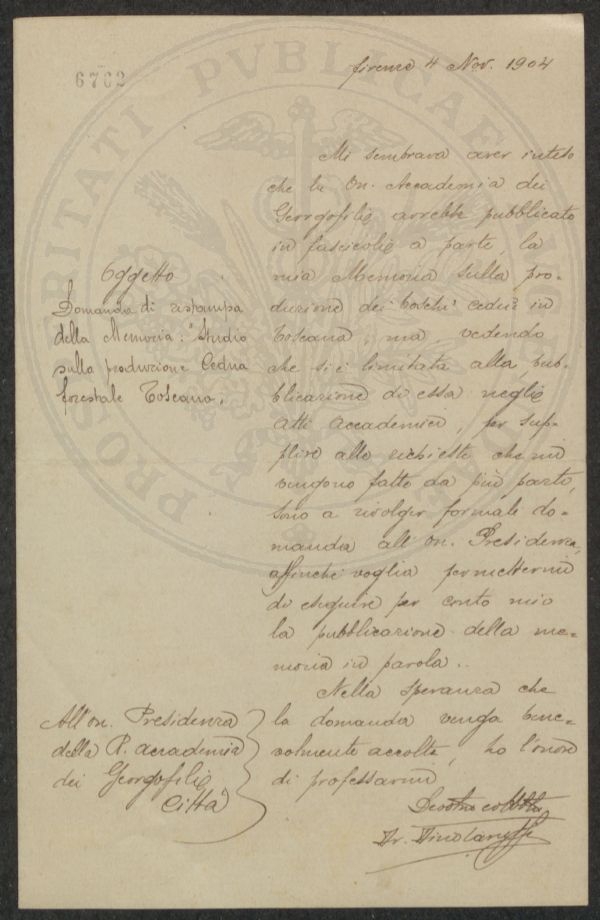 6702
Firenze 4 Nov. 1904
PROSPERITATI PVBLICAE
Mi sembrava aver inteso
che la On. Accademia dei
Georgofili avrebbe pubblicato
in fascicoli a parte, la
mia Memoria sulla pro-
duzione dei boschi cedui in
Toscana; ma, vedendo
che si è limitata alla pub-
blicazione di essa negli
Atti Accademici, per sup-
plire alle richieste che mi
vengono fatte da più parti,
sono a rivolger formale do-
manda all' On. Presidenza,
affinchè voglia permettermi
di eseguire per conto mio
la pubblicazione della me-
moria in parola.
Nella speranza che
la domanda venga bene-
volmente accolta, ho l'onore
di professarmi
Dr. Dino
Oggetto
Domanda di ristampa
della Memoria: "Studio
sulla produzione Cedua
forestale Toscana.
All'on. Presidenza
della R. accademia
dei Georgofili
Città